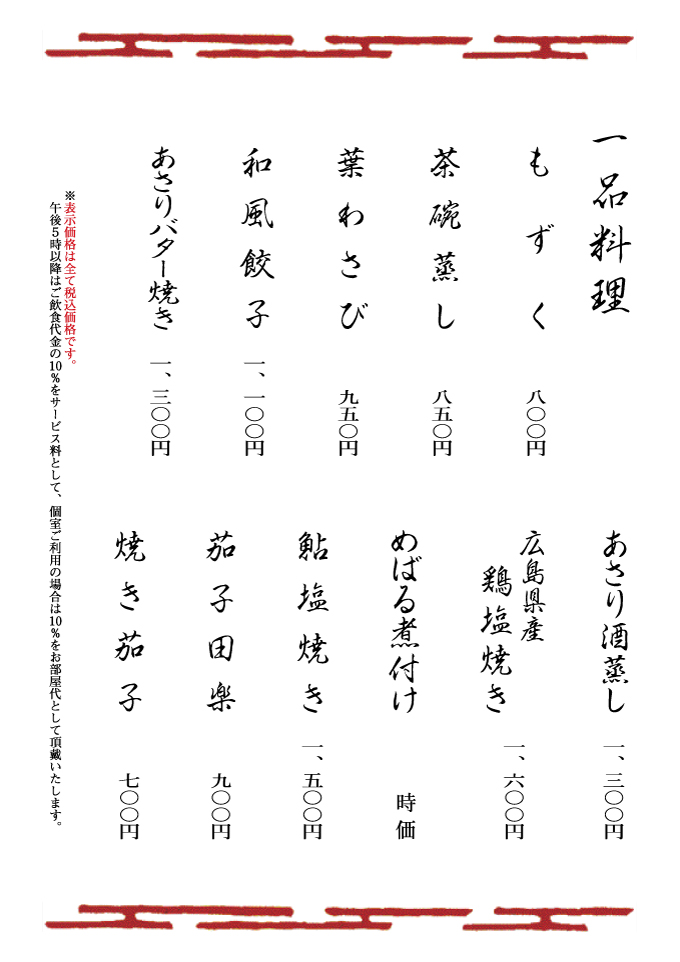 一品料理
もずく 八〇〇円
茶碗蒸し 八五〇円
葉わさび 九五〇円
和風餃子 一、一〇〇円
あさりバター焼き 一、三〇〇円
あさり酒蒸し 一、三〇〇円
広島県産
鶏塩焼き 一、六〇〇円
めばる煮付け 時価
鮎塩焼き 一、五〇〇円
茄子田楽 九〇〇円
焼き茄子 七〇〇円
※表示価格は全て税込価格です。
午後5時以降はご飲食代金の10%をサービス料として、個室ご利用の場合は10%をお部屋代として頂戴いたします。